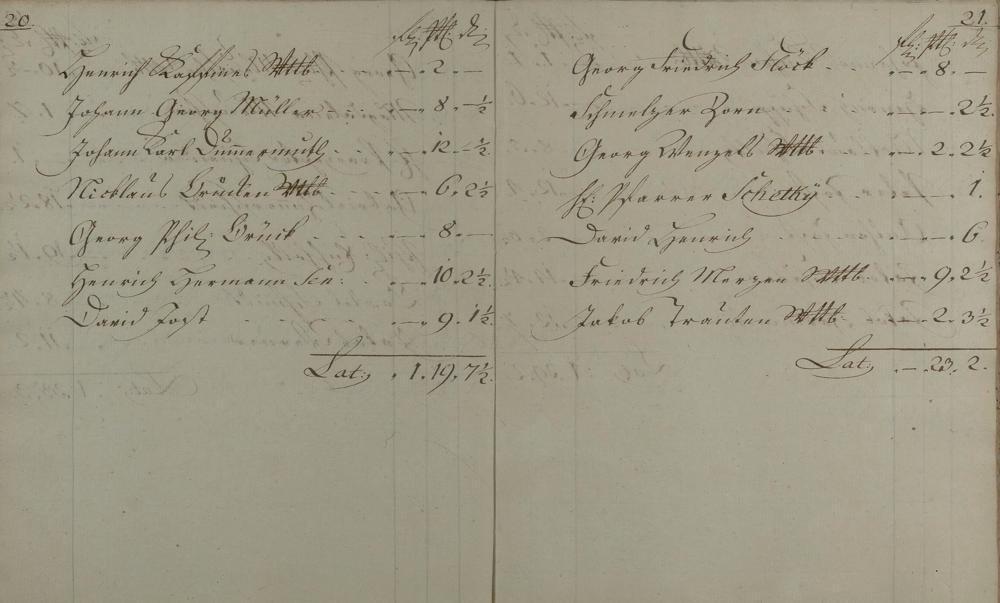 20.
fl: ₰tt: ₰
Henrich Wttb - 2. -
Johann Georg Müller - 8. ½
Johann Karl Dümmermuth - 12. ½
Nicklaus Brücken Wttb - 6. 2½
Georg Phil: Brück - 8. -
Henrich Hermann Sen: - 10. 2½
David Jost - 9. 1½
Lat: 1. 19. 7½
21.
Georg Friedrich Flöck - 8. -
Schmelzer Zorn - - 2½
Georg Wenzels Wttb - 2. 2½
H: Pfarrer Schetky - - 1.
David Henrich - - 6
Friedrich Merzen Wttb - 9. 2½
Jakob Trauten Wttb: - 2. 3½
Lat: - 23. 2.